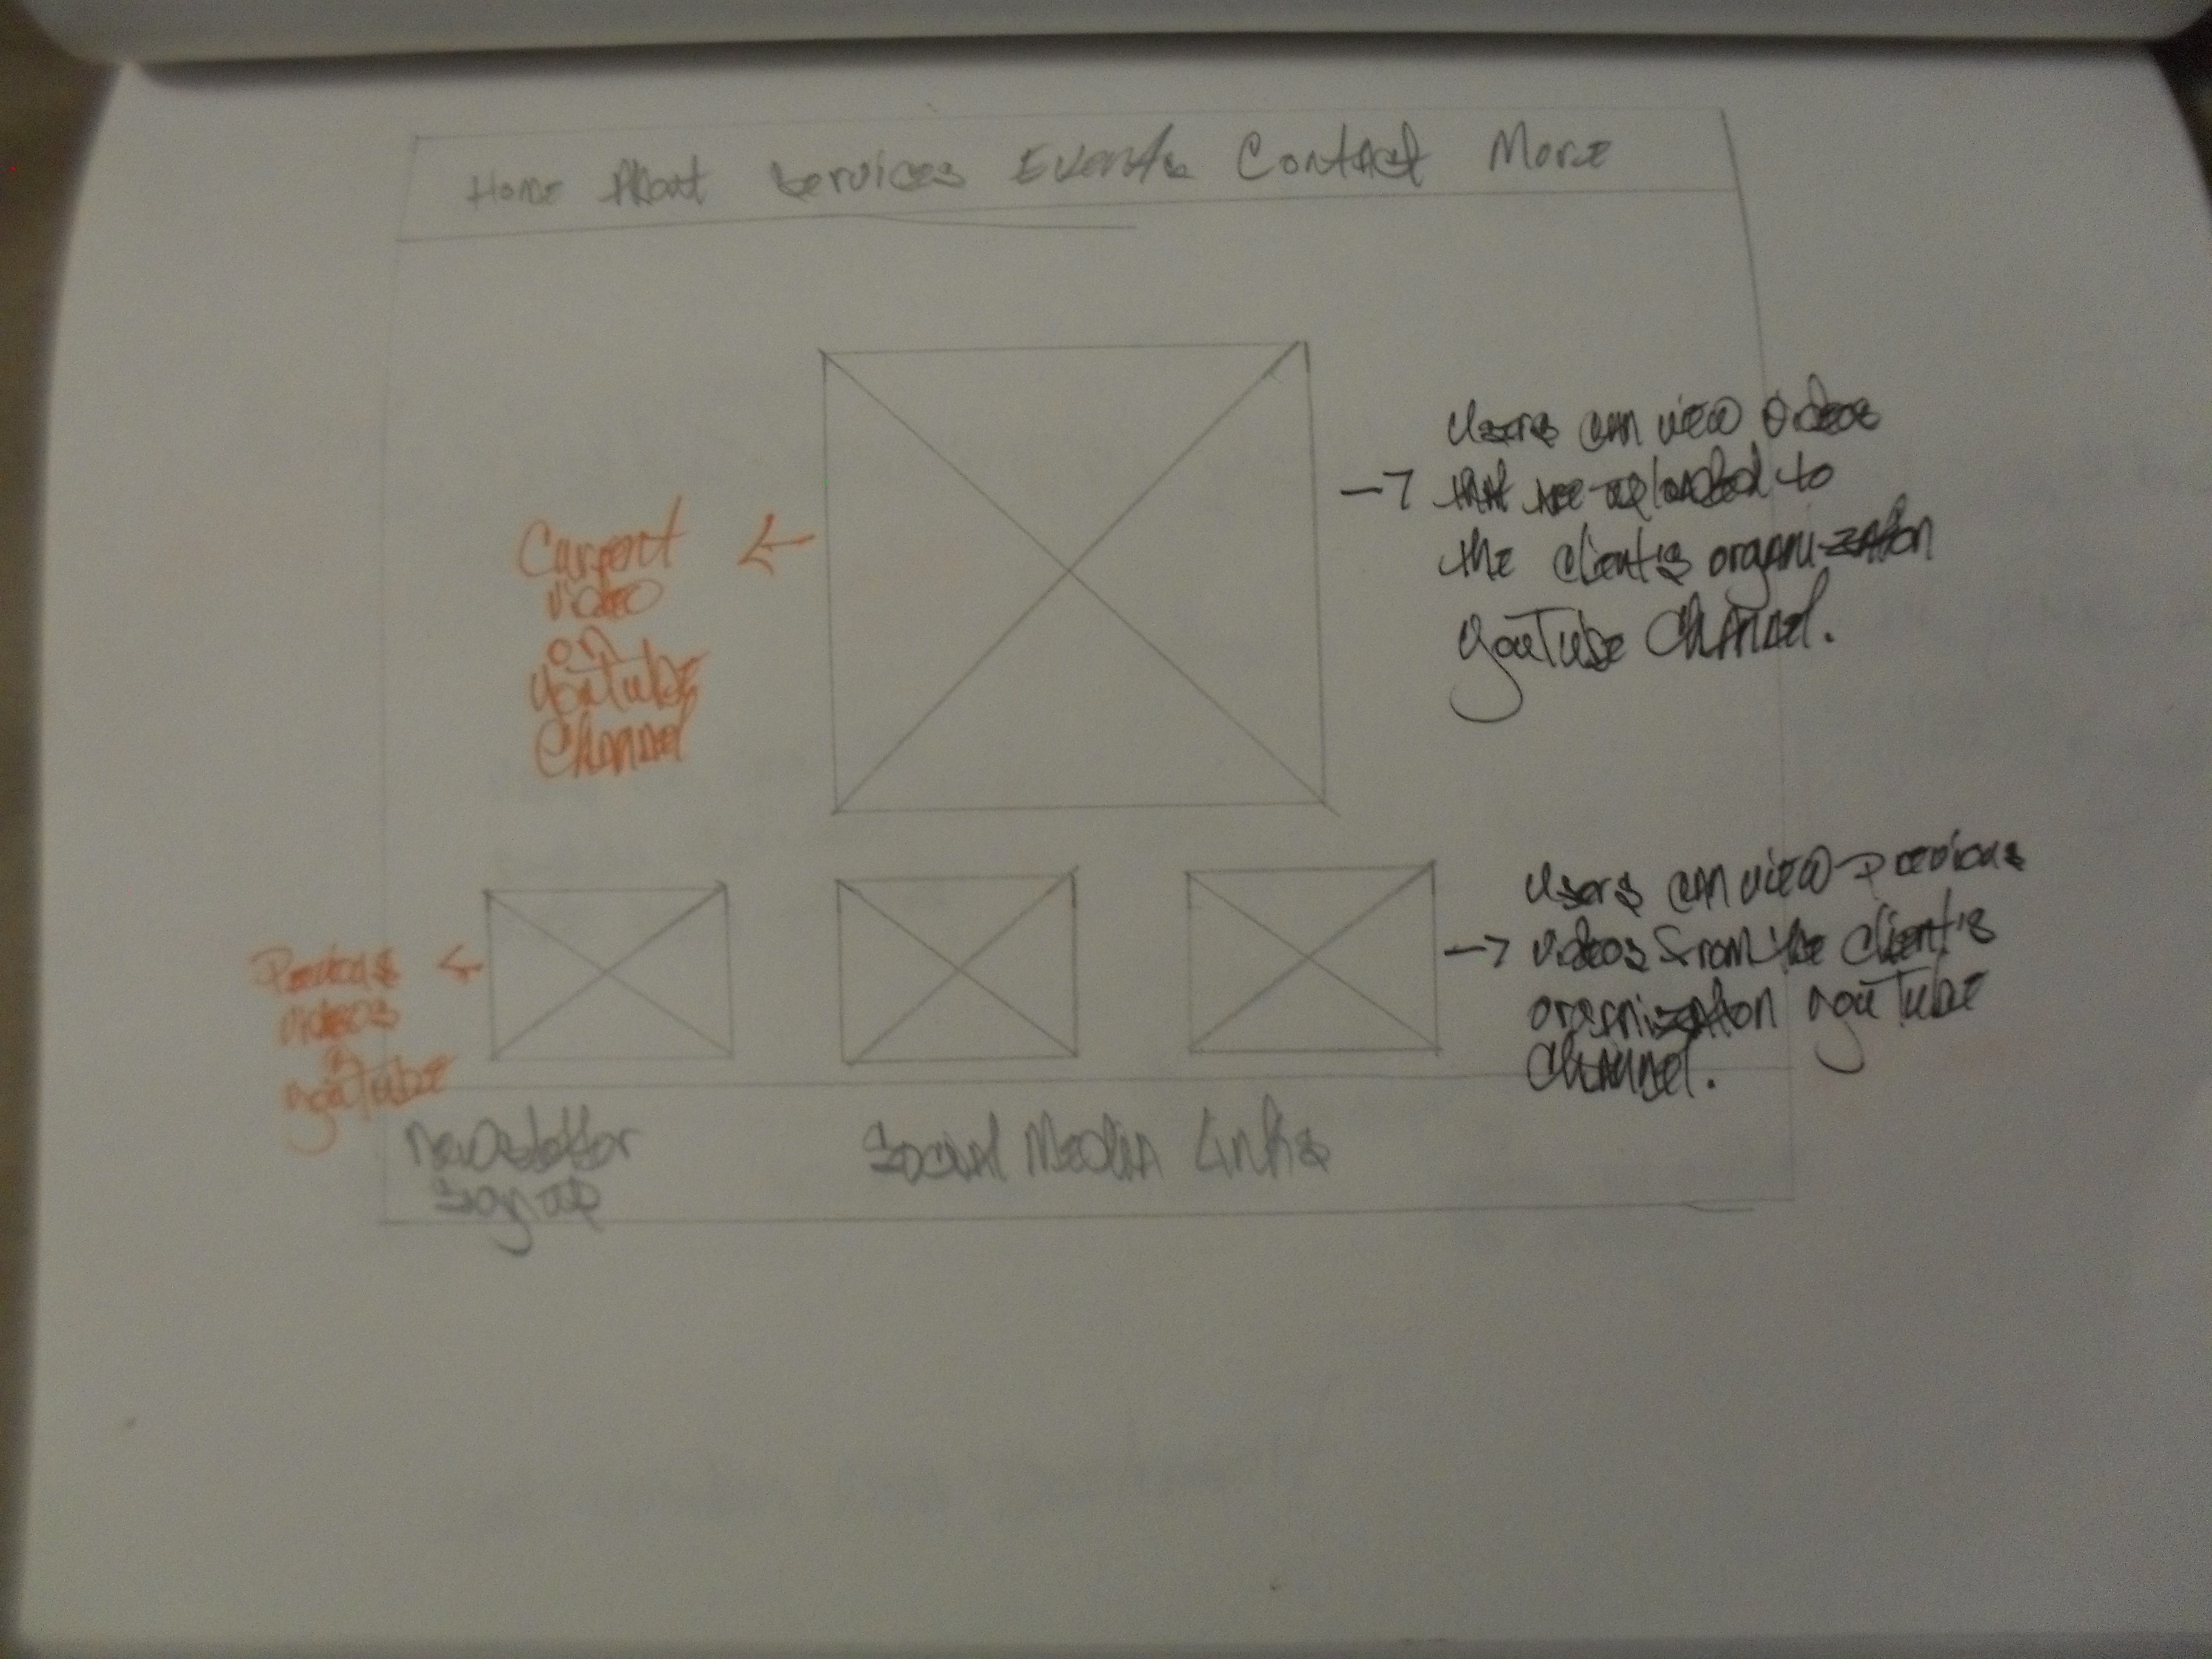 Home About Services Events Contact More
Current
video
on
YouTube
Channel
Users can view videos
that are uploaded to
the client's organization
YouTube Channel.
Previous
videos
YouTube
Users can view previous
videos from the client's
organization YouTube
Channel.
Newsletter
Sign up
Social Media Links